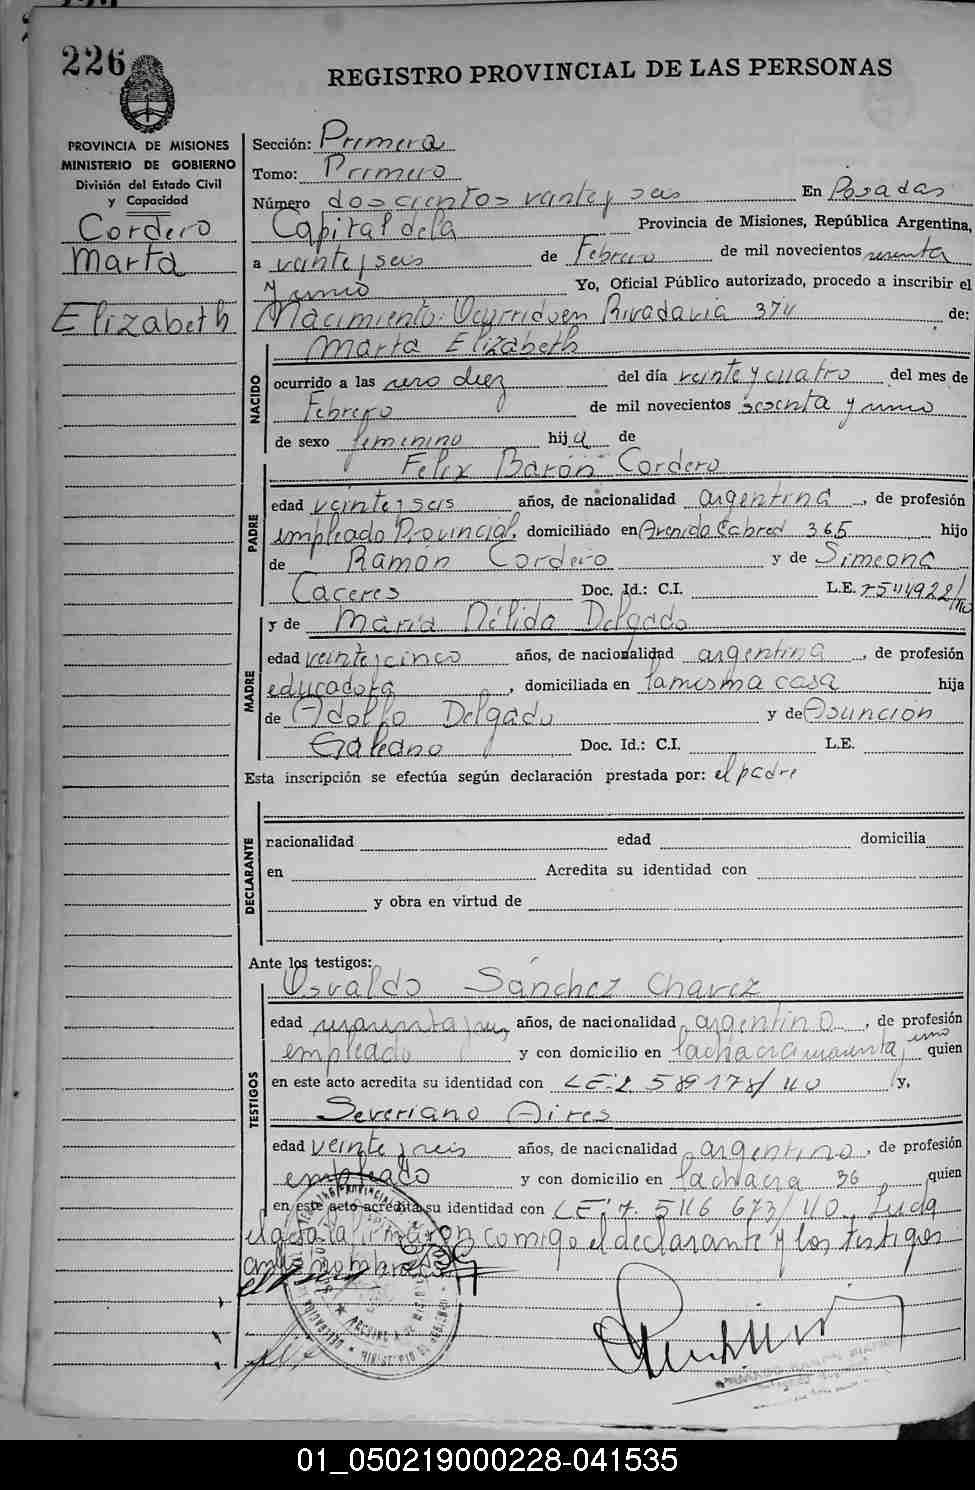 226
REGISTRO PROVINCIAL DE LAS PERSONAS
PROVINCIA DE MISIONES
MINISTERIO DE GOBIERNO
División del Estado Civil
y Capacidad
Cordero
Marta
Elizabeth
Sección: Primera
Tomo: Primero
Número doscientos veinte y seis En Posadas
Capital de la Provincia de Misiones, República Argentina,
a veinte y seis de Febrero de mil novecientos sesenta
y uno Yo, Oficial Público autorizado, procedo a inscribir el
Nacimiento: Ocurrido en Rivadavia 374 de:
NACIDO
Marta Elizabeth
ocurrido a las cero diez del día veinte y cuatro del mes de
Febrero de mil novecientos sesenta y uno
de sexo femenino hija de
PADRE
Felix Barón Cordero
edad veinte y seis años, de nacionalidad argentina, de profesión
empleado Provincial, domiciliado en Avenida Cabred 365 hijo
de Ramón Cordero y de Simeona
Caceres Doc. Id.: C.I. L.E. 7544922/
MADRE
y de María Nélida Delgado
edad veinte y cinco años, de nacionalidad argentina, de profesión
educadora, domiciliada en la misma casa hija
de Adolfo Delgado y de Asunción
Galeano Doc. Id.: C.I. L.E.
Esta inscripción se efectúa según declaración prestada por: el padre
DECLARANTE
nacionalidad edad domicilia
en Acredita su identidad con
y obra en virtud de
Ante los testigos:
TESTIGOS
Osvaldo Sánchez Chavez
edad años, de nacionalidad argentino, de profesión
empleado y con domicilio en la chacra cuarenta y uno quien
en este acto acredita su identidad con L E: 2 589178/40 y,
Severiano Aires
edad veinte y seis años, de nacionalidad argentino, de profesión
empleado y con domicilio en la chacra 36 quien
en este acto acredita su identidad con L E: 7. 546 673/40. Leida
el acta la firmaron comigo el declarante y los testigos
antes nombrados
01_050219000228-041535